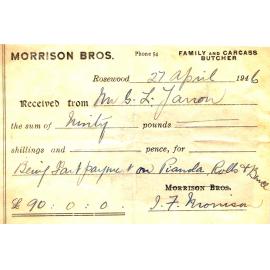 MORRISON BROS. Phone 54 FAMILY AND CARCASS BUTCHER
Rosewood 27 April 1946
Received from Mr C. L. Yarrow
the sum of Ninty pounds
shillings and pence, for
Being Part payment on Pianola Rolls &
MORRISON BROS.
£ 90 : 0 : 0. J. F. Morrison